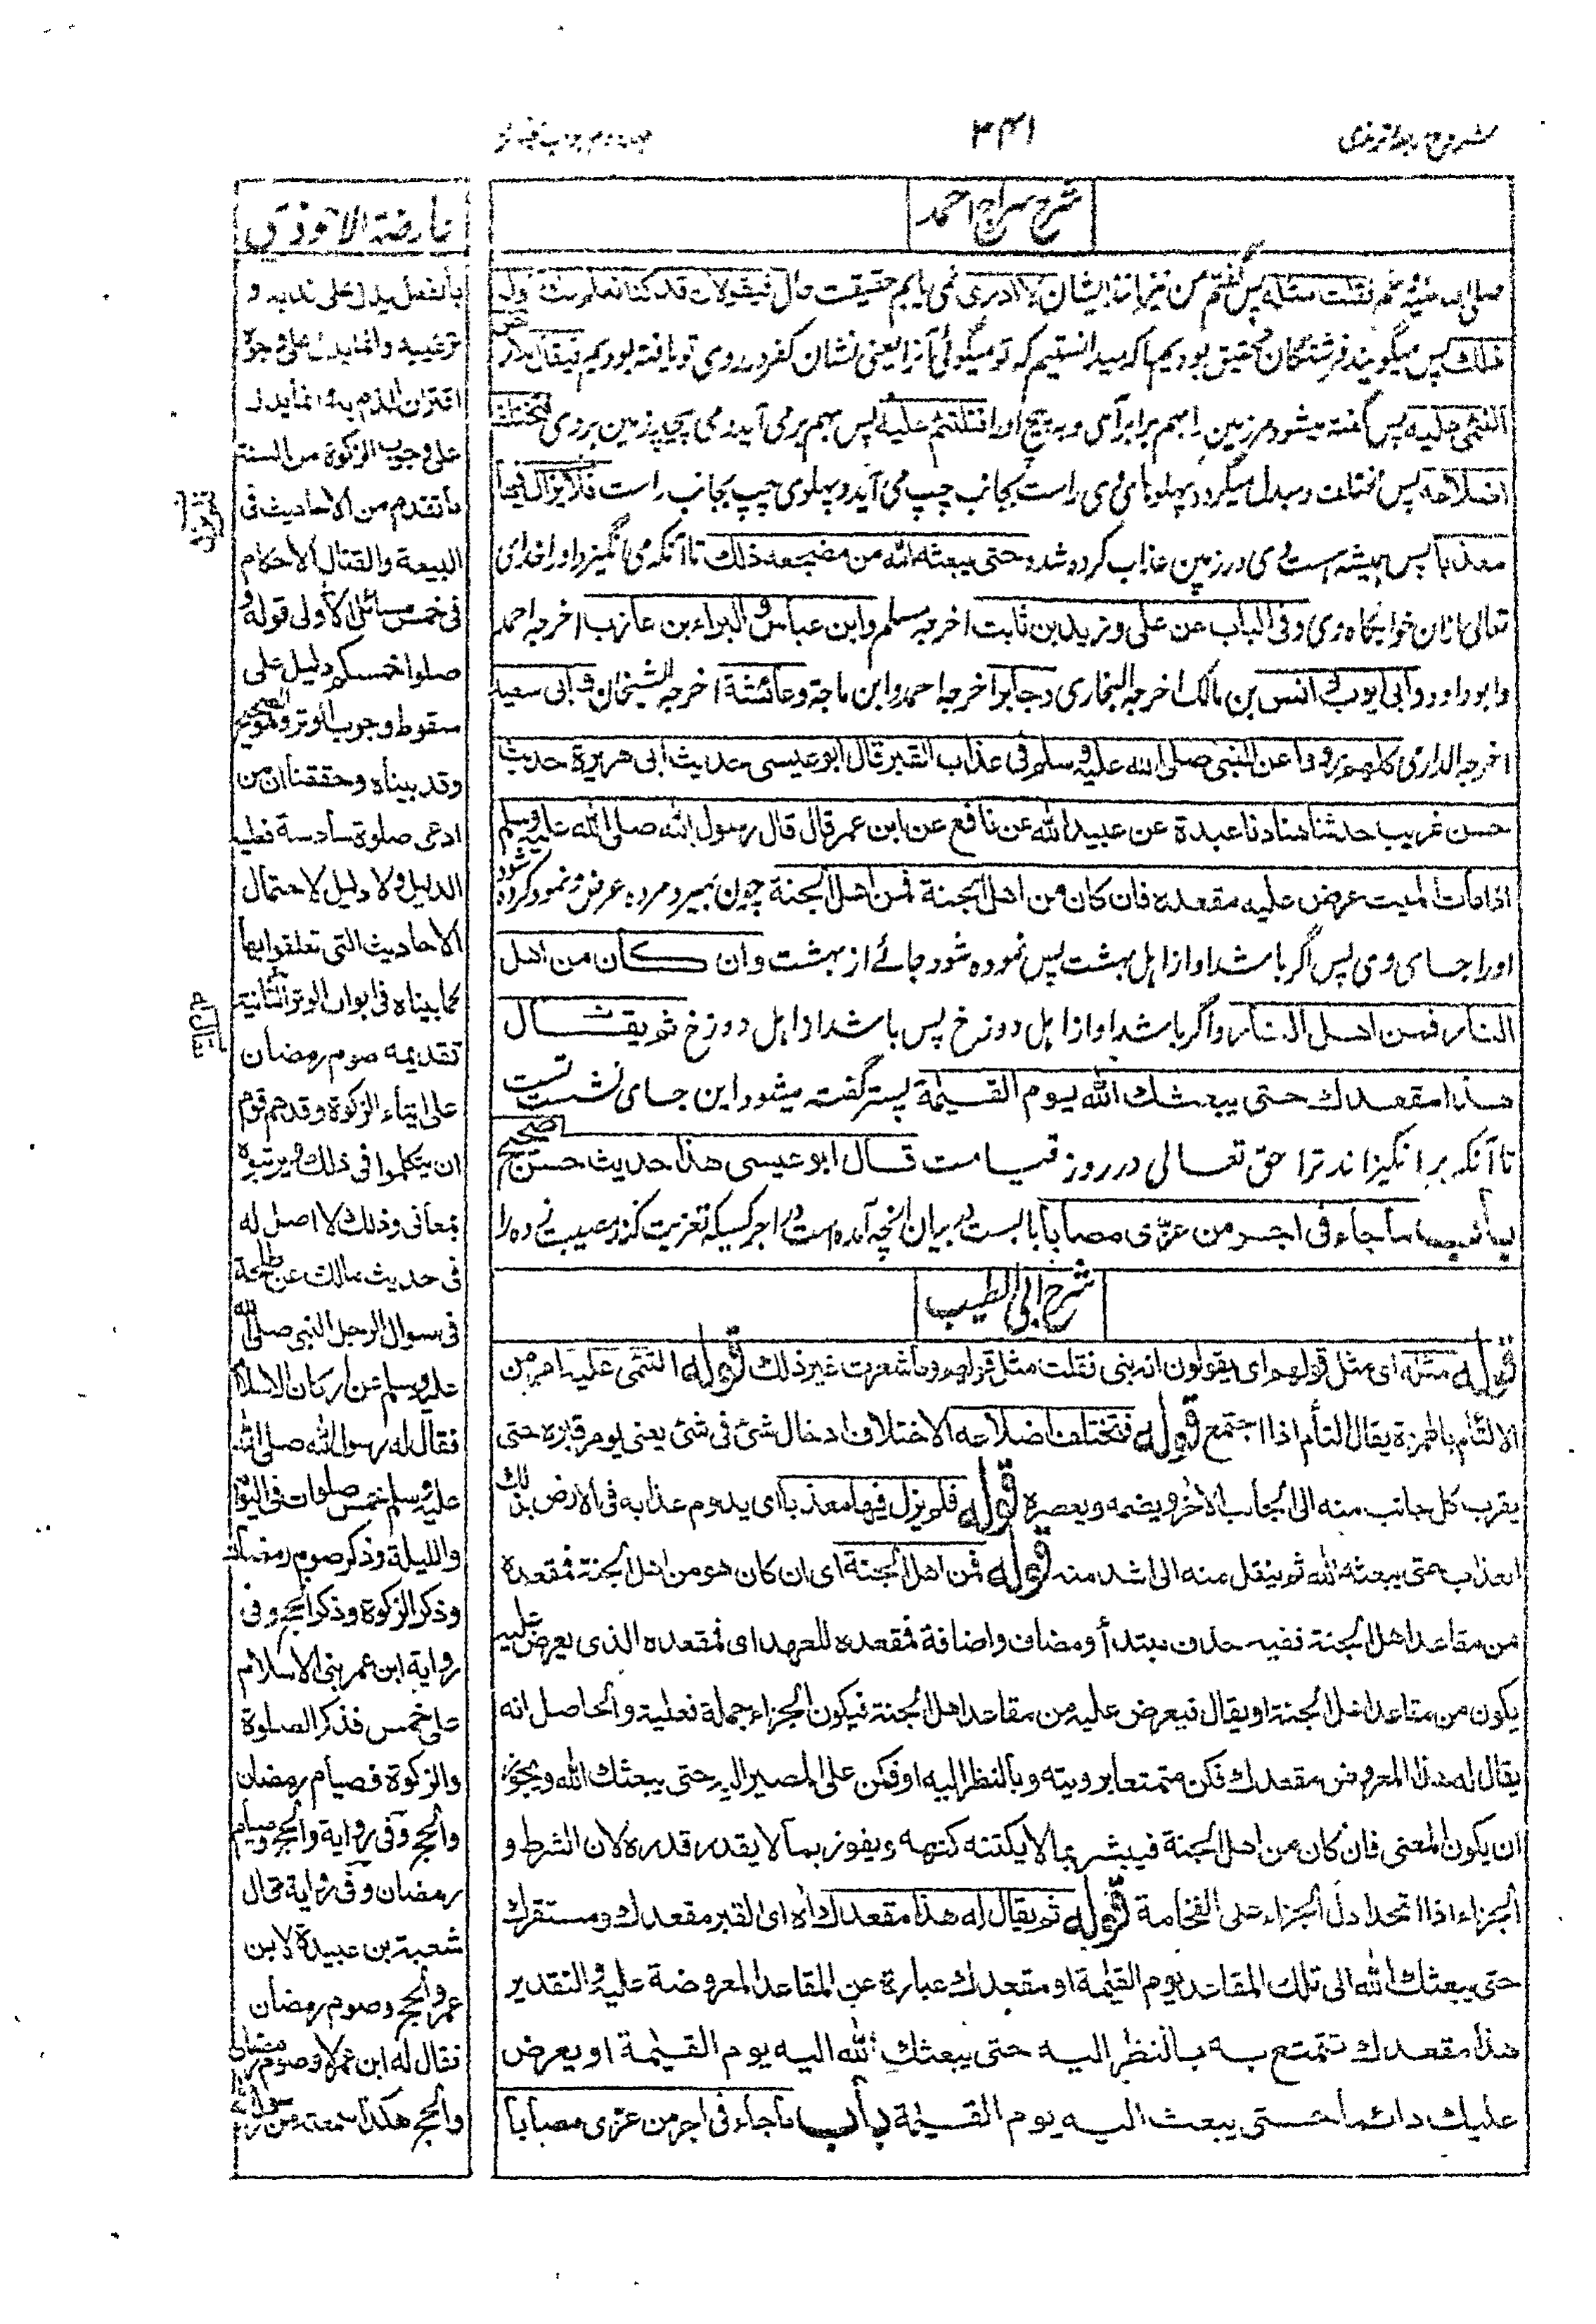 شروح اربعہ ترمذی
۳۴۱
شرح سراج احمد
صلی اللہ علیہ وسلم فقلت مثلہ پس گفتم من نیز مانند ایشان لا ادری نمی یابم حقیقت حال فیقولان قد کنا نعلم انک تقول
ذلک پس میگویند فرشتگان تحقیق بودیم ما کہ میدانستیم کہ تو میگوئی آنرا یعنی نشان کفر در روی تو یافتہ بودیم فیقال للارض
التئمی علیہ پس گفتہ میشود مر زمین را بہم برابر آی و بہ پیچ او را فتلتئم علیہ پس بہم بر می آید و می پیچد زمین بر وی فتختلف
اضلاعہ پس مختلف و مبدل میگردد پہلوهای وی راست بجانب چپ می آید و پہلوی چپ بجانب راست فلا یزال فیہا
معذبا پس ہمیشہ است وی در زمین عذاب کردہ شدہ حتی یبعثہ اللہ من مضجعہ ذلک تا آنکہ می انگیزد او را خدای
تعالی ازان خوابگاہ وی وفی الباب عن علی وزید بن ثابت اخرجہ مسلم وابن عباس والبراء بن عازب اخرجہ احمد
وابو داود وابی ایوب وانس بن مالک اخرجہ البخاری وجابر اخرجہ احمد وابن ماجة وعائشة اخرجہ الشیخان وابی سعید
اخرجہ الدارمی کلہم رووا عن النبی صلی اللہ علیہ وسلم فی عذاب القبر قال ابو عیسی حدیث ابی ھریرة حدیث
حسن غریب حدثنا ھناد نا عبدة عن عبید اللہ عن نافع عن ابن عمر قال قال رسول اللہ صلی اللہ علیہ وسلم
اذا مات المیت عرض علیہ مقعدہ فان کان من اھل الجنة فمن اھل الجنة چون بمیرد مردہ عرض و نمود کردہ شود
او را جای وی پس اگر باشد او از اہل بہشت پس نمودہ شود جائے از بہشت وان کان من اھل
النار فمن اھل النار واگر باشد او از اہل دوزخ پس باشد از اہل دوزخ ثم یقال
ھذا مقعدک حتی یبعثک اللہ یوم القیٰمة پستر گفتہ میشود این جای نشست تست
تا آنکہ بر انگیزاند ترا حق تعالی در روز قیامت قال ابو عیسی ھذا حدیث حسن صحیح
باب ما جاء فی اجر من عزی مصابا بابست در بیان آنچہ آمدہ است در اجر کسیکہ تعزیت کند مصیبت زدہ را
شرح ابی الطیب
قولہ مثلہ ای مثل قولھم ای یقولون انہ نبی فقلت مثل قولھم وما شعرت غیر ذلک قولہ التئمی علیہ امر من
الالتئام بالھمزة یقال التأم اذا اجتمع قولہ فتختلف اضلاعہ الاختلاف ادخال شئ فی شئ یعنی یومر قبرہ حتی
یقرب کل جانب منہ الی الجانب الاخر ویضمہ ویعصرہ قولہ فلم یزل فیھا معذبا ای یدوم عذابہ فی الارض بذلک
العذاب حتی یبعثہ اللہ ثم ینقل منہ الی اشد منہ قولہ فمن اھل الجنة ای ان کان ھو من اھل الجنة فمقعدہ
من مقاعد اھل الجنة ففیہ حذف مبتدأ ومضاف واضافة فمقعدہ للعھد ای فمقعدہ الذی یعرض علیہ
یکون من مقاعد اھل الجنة او یقال فیعرض علیہ من مقاعد اھل الجنة فیکون الجزاء جملة فعلیة والحاصل انہ
یقال لہ ھذا المعروض مقعدک فکن متمتعا برویتہ وبالنظر الیہ او فکن علی المصیر الیہ حتی یبعثک اللہ ویجوز
ان یکون المعنی فان کان من اھل الجنة فیبشر بما لا یکتنہ کنھہ ویفوز بما لا یقدر قدرہ لان الشرط و
الجزاء اذا اتحدا دل الجزاء علی الفخامة قولہ ثم یقال لہ ھذا مقعدک اہ ای القبر مقعدک ومستقرک
حتی یبعثک اللہ الی تلک المقاعد یوم القیٰمة او مقعدک عبارة عن المقاعد المعروضة علیہ والتقدیر
ھذا مقعدک تتمتع بہ بالنظر الیہ حتی یبعثک اللہ الیہ یوم القیٰمة او یعرض
علیک دائما حتی یبعث الیہ یوم القیٰمة باب ما جاء فی اجر من عزی مصابا
عارضة الاحوذی
بالفعل یدل علی ندبہ و
ترغیبہ وانما یدل علی وجوبہ
اقتران الذم بہ وانما یدل
علی وجوب الزکوة من السنة
ما تقدم من الاحادیث فی
البیعة والقتال الاحکام
فی خمس مسائل الاولی قولہ و
صلوا خمسکم دلیل علی
سقوط وجوب الوتر وھو الصحیح
وقد بیناہ وحققنا ان من
ادعی صلوة سادسة فعلیہ
الدلیل ولا دلیل لاحتمال
الاحادیث التی تعلقوا بھا
کما بیناہ فی ابواب الوتر الثانیة
تقدیمہ صوم رمضان
علی ایتاء الزکوة وقد ھم قوم
ان یتکلموا فی ذلک ویرتبوہ
بمعانی وذلک لا اصل لہ
فی حدیث مالک عن طلحة
فی سوال الرجل النبی صلی اللہ
علیہ وسلم عن ارکان الاسلام
فقال لہ رسول اللہ صلی اللہ
علیہ وسلم خمس صلوات فی الیوم
واللیلة وذکر صوم رمضان
وذکر الزکوة وذکر الحج وفی
روایة ابن عمر بنی الاسلام
علی خمس فذکر الصلوة
والزکوة فصیام رمضان
والحج وفی روایة والحج وصیام
رمضان وفی روایة قال
شعبة بن عبیدة لابن
عمر والحج وصوم رمضان
فقال لہ ابن عمر لا وصوم رمضان
والحج ھکذا سمعتہ من رسول اللہ